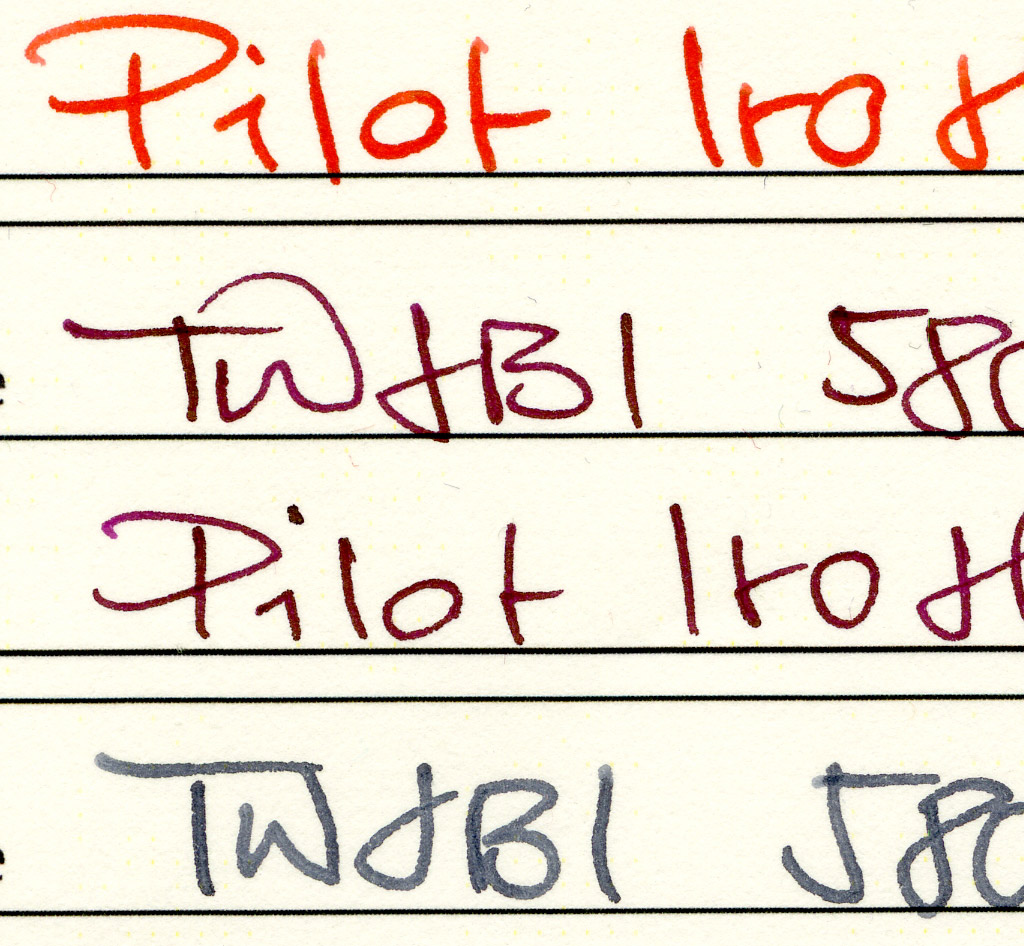 Pilot Iros
TWSBI 580
Pilot Irosh
TWSBI 580